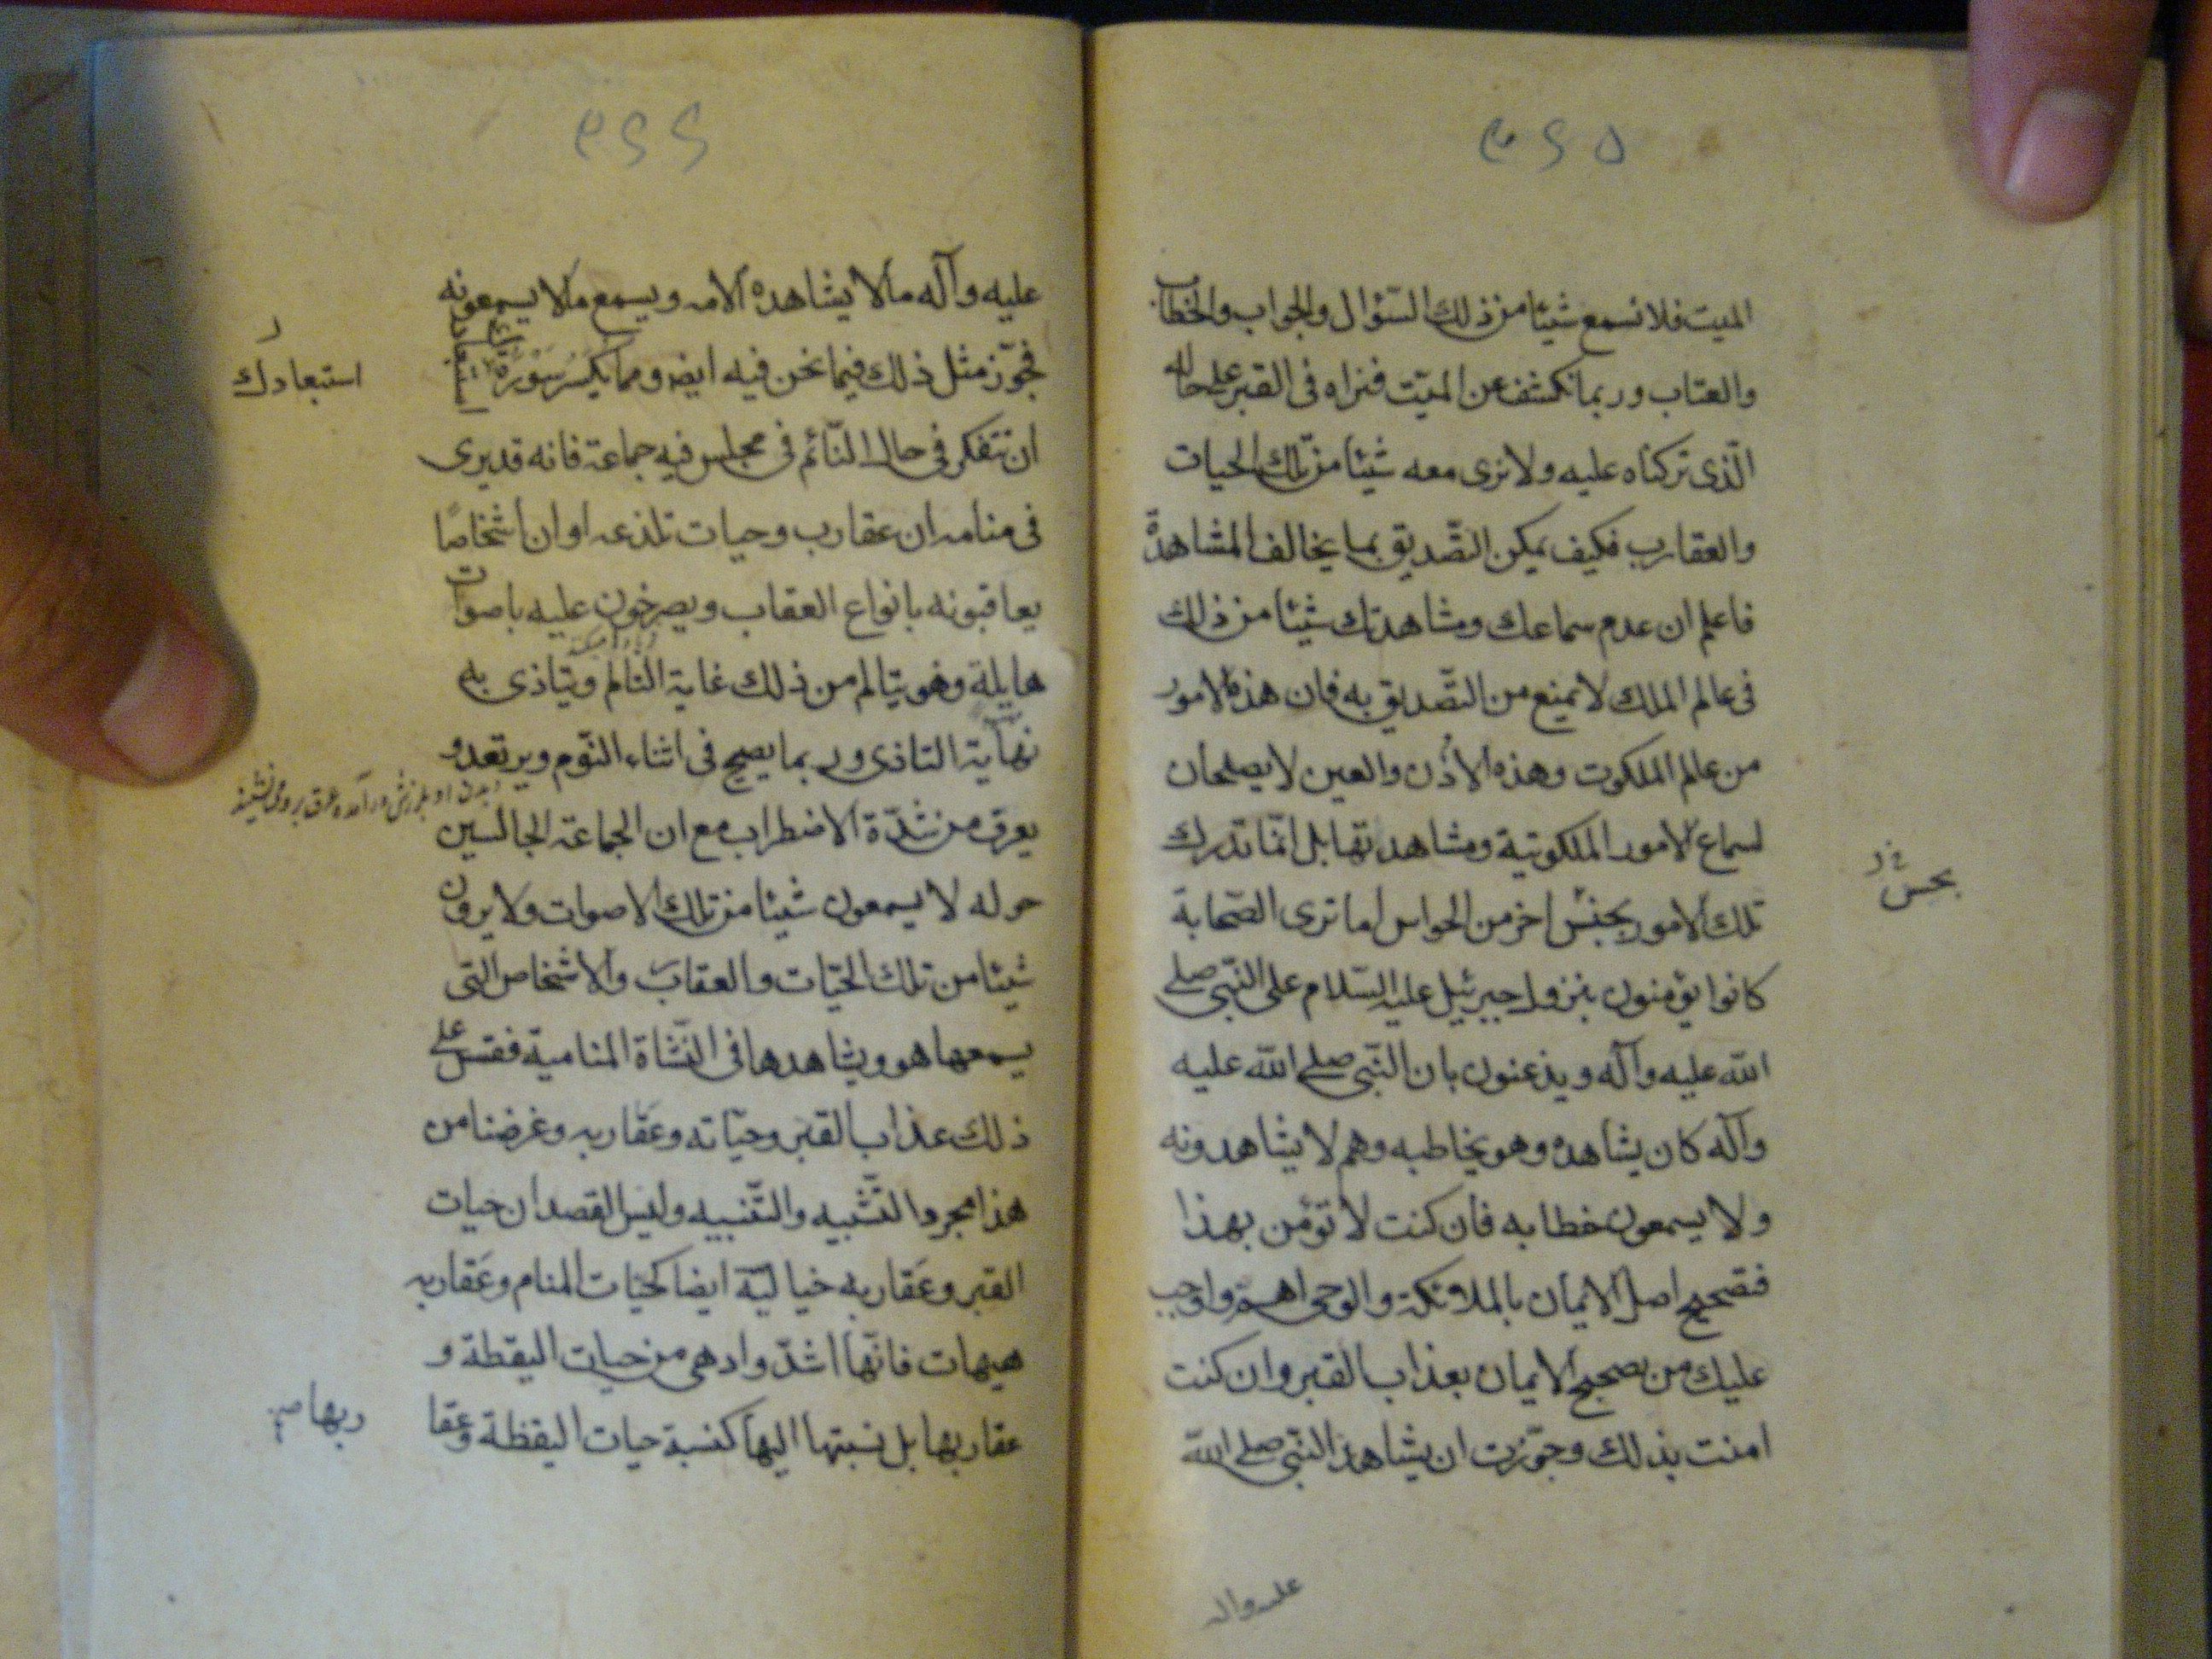 الميت فلا نسمع شيئا من ذلك السّؤال والجواب والخطاب
والعتاب وربما نكشف عن الميّت فنراه فى القبر على حاله
الّذى تركناه عليه ولا نرى معه شيئا من تلك الحيات
والعقارب فكيف يمكن التصّديق بما يخالف المشاهدة
فاعلم ان عدم سماعك ومشاهدتك شيئا من ذلك
فى عالم الملك لا يمنع من التصّديق به فان هذه الامور
من عالم الملكوت وهذه الاذن والعين لا يصلحان
لسماع الامور الملكوتية ومشاهدتها بل انّما تدرك
تلك الامور بجنس اخر من الحواس اما ترى الصّحابة
بحس
كانوا يؤمنون بنزول جبرئيل عليه السّلام على النّبى صلى
الله عليه وآله ويذعنون بان النّبى صلى الله عليه
وآله كان يشاهده وهو يخاطبه وهم لا يشاهدونه
ولا يسمعون خطابه فان كنت لا تؤمن بهذا
فتصحيح اصل الايمان بالملائكة والوحى اهم واوجب
عليك من تصحيح الايمان بعذاب القبر وان كنت
امنت بذلك وجوّزت ان يشاهد النّبى صلى الله
عليه واله
عليه وآله ما لا يشاهده الامه ويسمع ما لا يسمعونه
فجوّز مثل ذلك فيما نحن فيه ايضا ومما يكسر سَوْرَة
استبعادك
ان تتفكر فى حال النّائم فى مجلس فيه جماعة فانه قد يرى
فى منامه ان عقارب وحيات تلذعه او ان اشخاصًا
يعاقبونه بانواع العقاب ويصرخون عليه باصوات
هايلة وهو يتالم من ذلك غاية التالم ويتاذى به
نهاية التاذى وربما يصيح فى اثناء النّوم ويرتعد و
يعرق من شدّة الاضطراب مع ان الجماعة الجالسين
حوله لا يسمعون شيئا من تلك الاصوات ولا يرون
شيئا من تلك الحيّات والعقارب والاشخاص التى
يسمعها هو ويشاهدها فى النّشاة المنامية فقس على
ذلك عذاب القبر وحيّاته وعَقاربه وغرضنا من
هذا مجرد التّشبيه والتّنبيه وليس القصد ان حيات
القبر وعَقاربه خياليّة ايضا كحيّات المنام وعَقاربه
هيهات فانّها اشدّ وادهى من حيات اليقظة و
عقاربها بل نسبتها اليها كنسبة حيات اليقظة وعقا
ربها